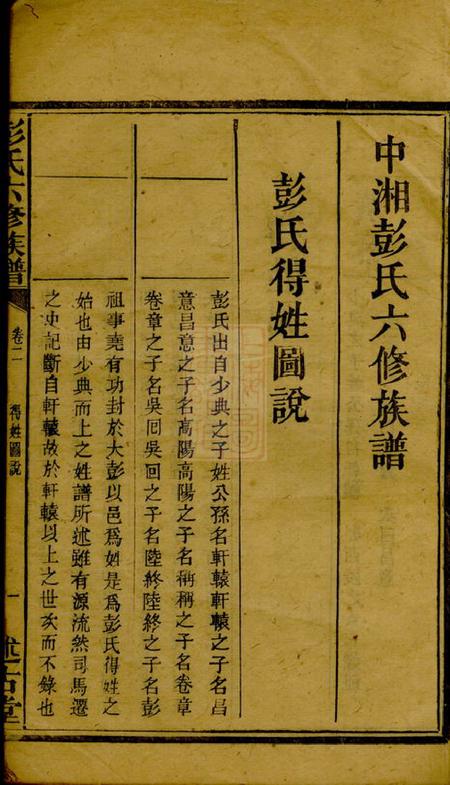 中湘彭氏六修族譜
彭氏得姓圖說
彭氏出自少典之子姓公孫名軒轅軒轅之子名昌
意昌意之子名高陽高陽之子名稱稱之子名卷章
卷章之子名吳囘吳回之子名陸終陸終之子名彭
祖事堯有功封於大彭以邑爲姓是爲彭氏得姓之
始也由少典而上之姓譜所述雖有源流然司馬遷
之史記斷自軒轅故於軒轅以上之世次而不錄也
彭氏六修族譜
卷二
得姓圖說
一